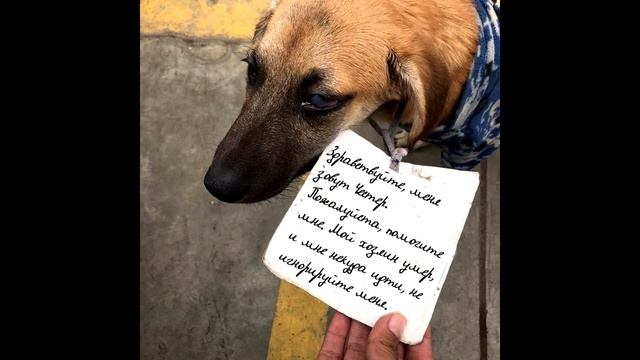 Здравствуйте, мене
зовут Честер.
Пожалуйста, помогите
мне. Мой хозяин умер,
и мне некуда идти, не
игнорируйте меня.